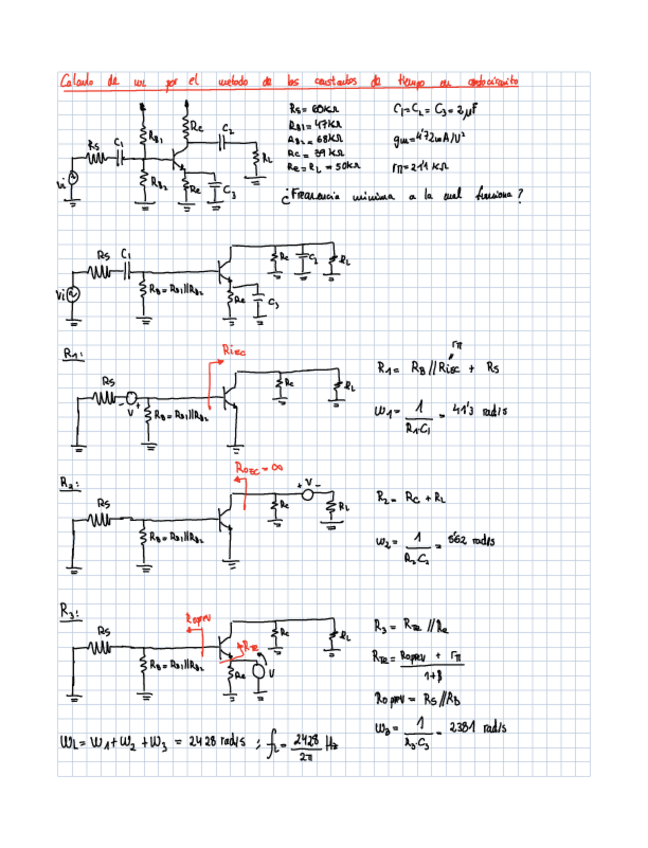 Calculo de wL por el metodo de las constantes de tiempo en cortocircuito
Rs = 60KΩ
RB1 = 47KΩ
RB2 = 68KΩ
Rc = 39 KΩ
Re = RL = 50KΩ
C1 = C2 = C3 = 2μF
gm = 4'72mA/V²
rπ = 2'14 KΩ
¿Frecuencia minima a la cual funciona?
Rs C1 RB1 Rc C2 RL
vi RB2 Re C3
Rs C1 Rc RL
Vi RB = RB1//RB2 Re C3
R1:
Risc
Rs Rc RL
- V +
RB = RB1//RB2
rπ
R1 = RB//Risc + Rs
W1 = 1/R1·C1 = 41'3 rad/s
R2:
Rosc = ∞
+ V -
Rs Rc RL
RB = RB1//RB2
R2 = Rc + RL
W2 = 1/R2·C2 = 5'62 rad/s
R3:
Roprev
Rs RTE Rc RL
RB = RB1//RB2 Re V
R3 = RTE // Re
RTE = Roprev + rπ / 1+β
Roprev = Rs//RB
W3 = 1/R3·C3 = 2381 rad/s
WL = W1 + W2 + W3 = 2428 rad/s ; fL = 2428/2π Hz